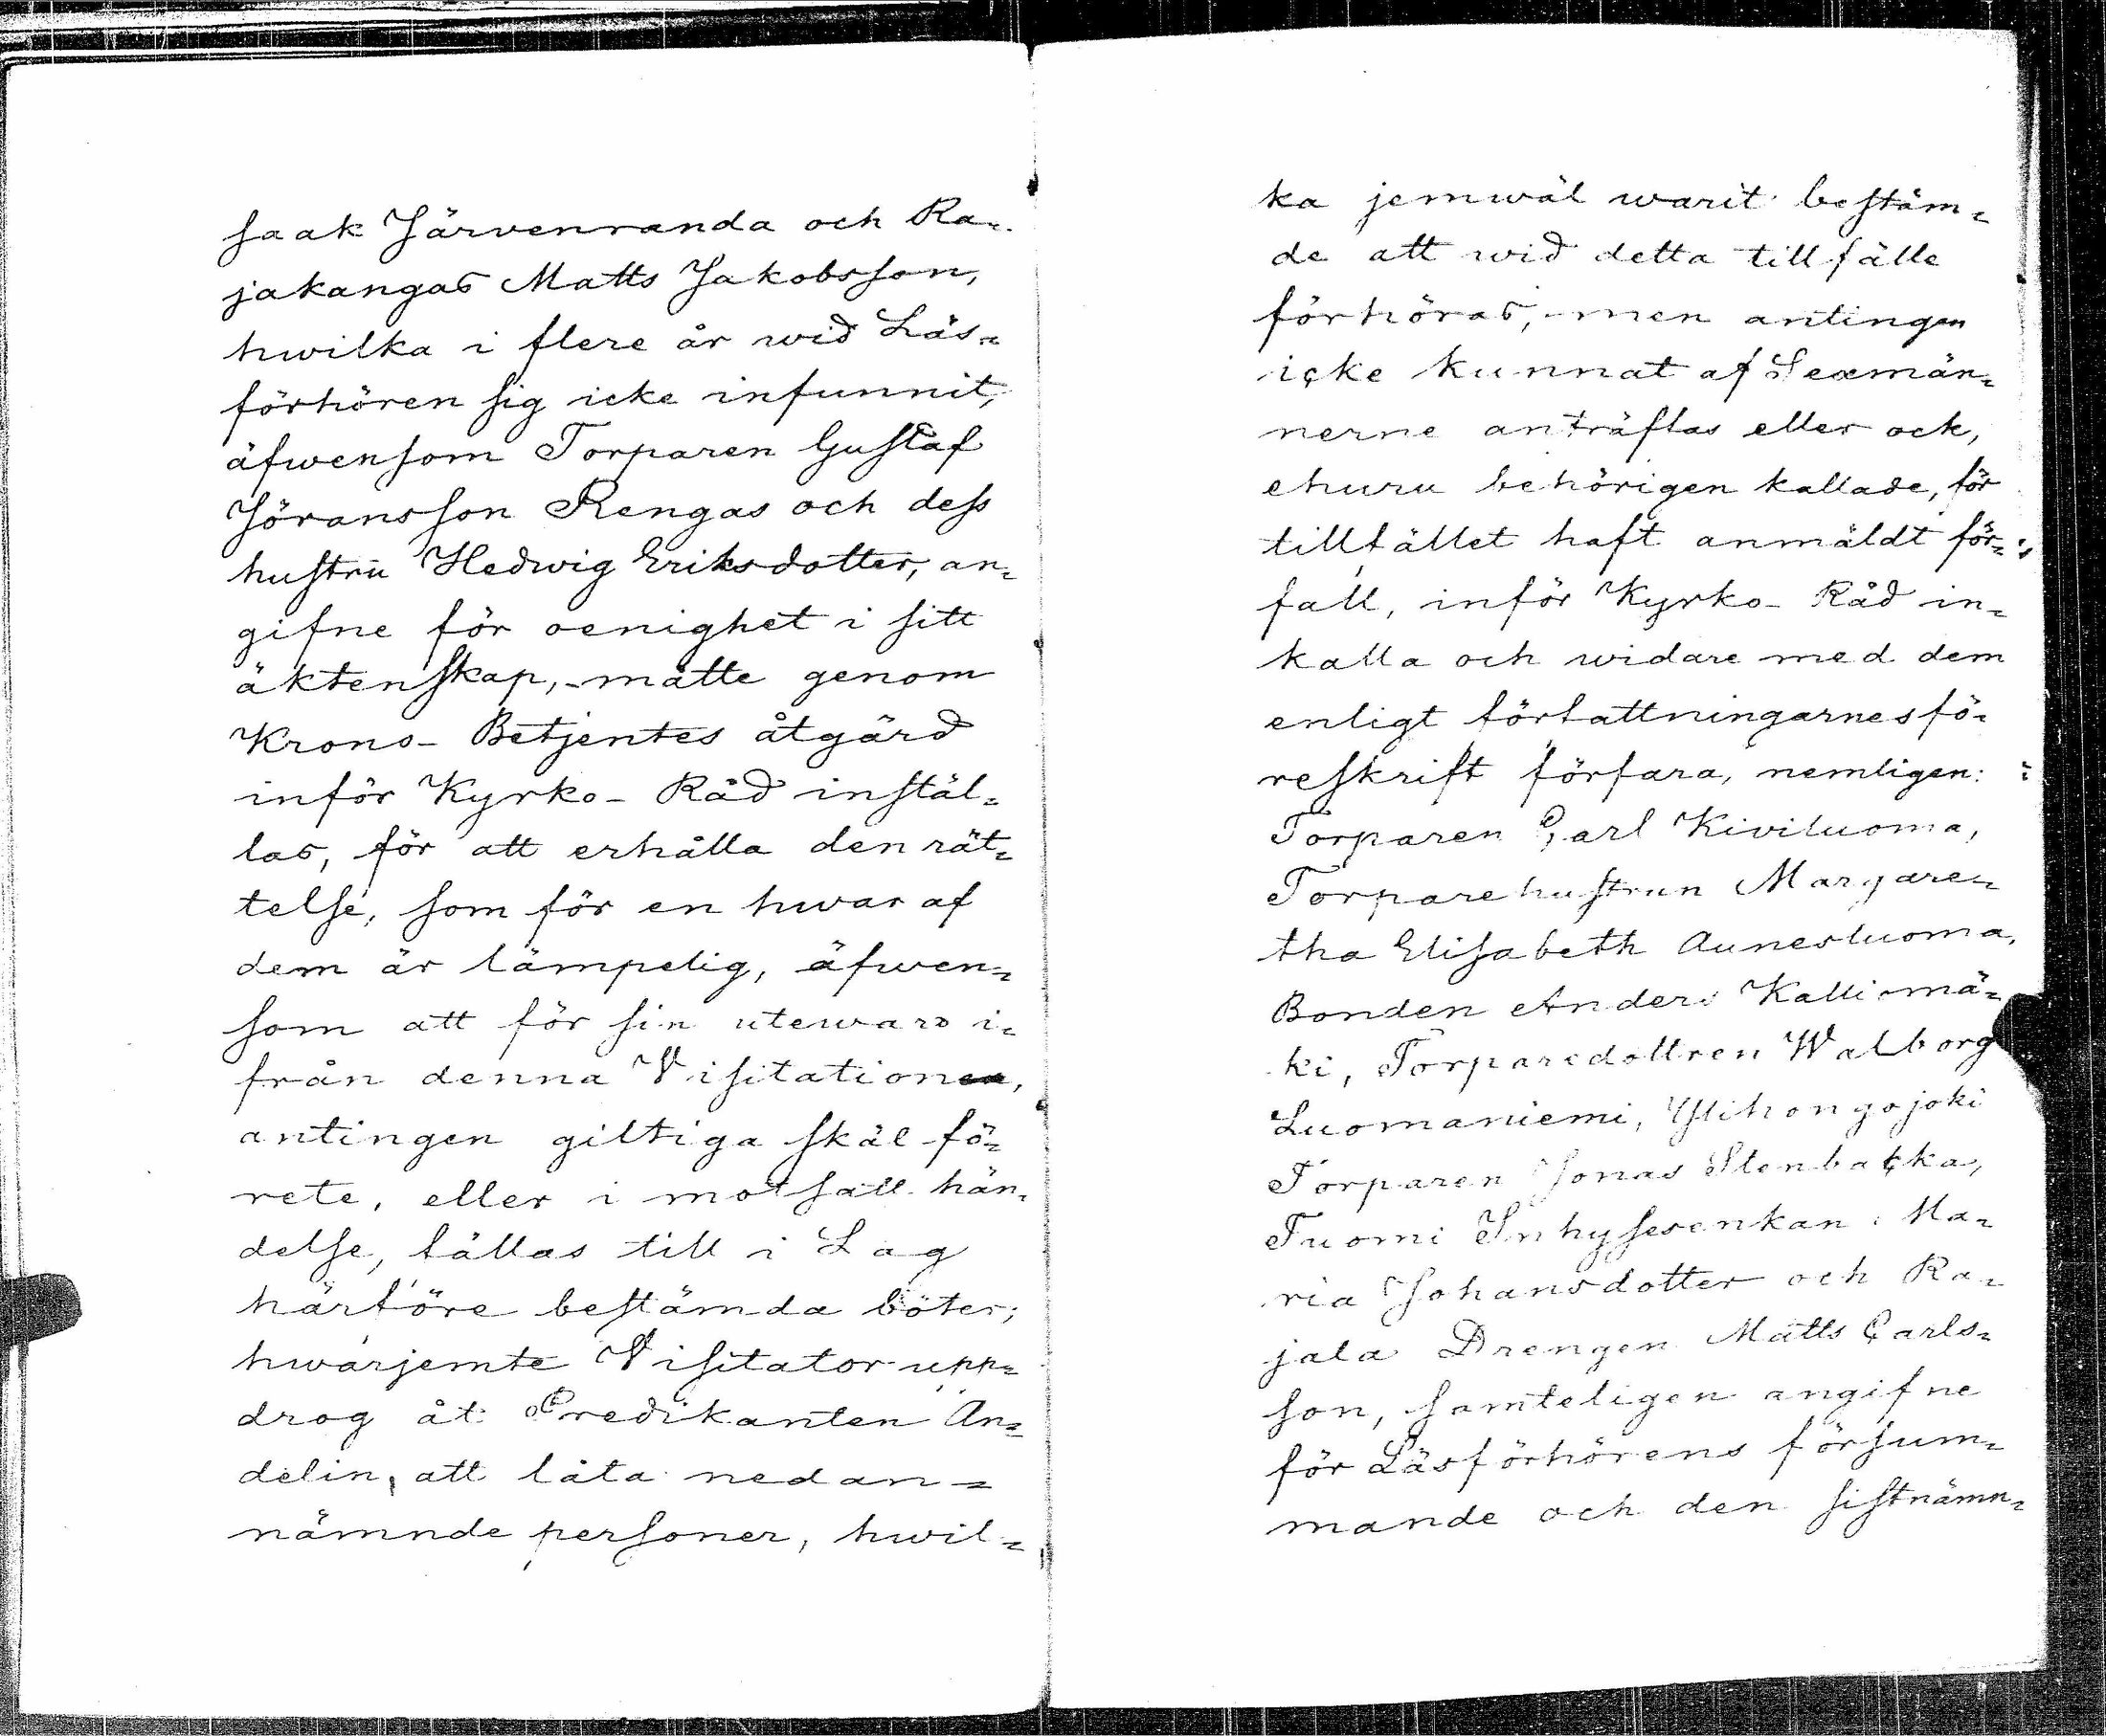 saak Järvenranda och Ra-
jakangas Matts Jakobsson,
hwilka i flere år wid Läs-
förhören sig icke infunnit,
äfwensom Torparen Gustaf
Jöransson Rengas och dess
hustru Hedwig Eriksdotter, an-
gifne för oenighet i sitt
äktenskap, - måtte genom
Krono- Betjentes åtgärd
inför Kyrko- Råd instäl-
las, för att erhålla den rät-
telse, som för en hwar af
dem är lämpelig, äfwen-
som att för sin utewaro i-
från denna Visitation,
antingen giltiga skäl fö-
rete, eller i motsatt hän-
delse, fällas till i Lag
härföre bestämda böter;
hwarjemte Visitator upp-
drog åt Predikanten An-
delin, att låta nedan-
nämnde personer, hwil-
ka jemwäl warit bestäm-
de att wid detta tillfälle
förhöras, - men antingen
icke kunnat af Sexmän-
nerne anträffas eller ock,
ehuru behörigen kallade, för
tillfället haft anmäldt för-
fall, inför Kyrko- Råd in-
kalla och widare med dem
enligt författningarnes fö-
reskrift förfara, nemligen:
Torparen Carl Kiviluoma,
Torparehustrun Margare-
tha Elisabeth Aunesluoma,
Bonden Anders Kalliomä-
ki, Torparedottren Walborg
Luomaniemi, Ylihongojoki
Torparen Jonas Stenbacka,
Tuomi Inhysesenkan Ma-
ria Johansdotter och Ra-
jala Drengen Matts Carls-
son, samteligen angifne
för Läsförhörens försum-
mande och den sistnämn-